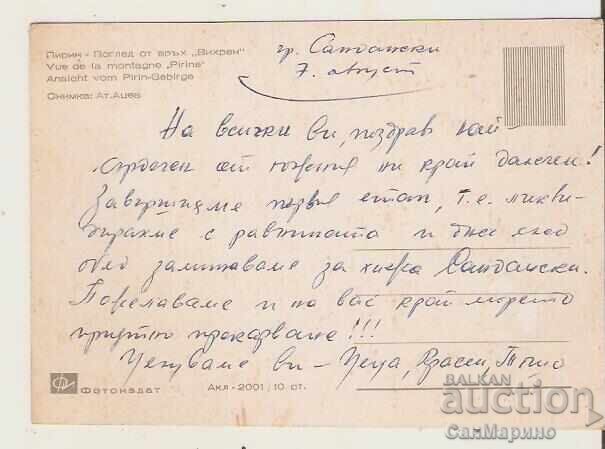 Пирин - Поглед от връх „Вихрен“
Vue de la montagne „Pirine“
Ansicht vom Pirin-Gebirge
Снимка: Ат. Ацев
гр. Сандански
7. август
На всички ви, поздрав най-
сърдечен от южния ни край далечен!
Завършваме първия етап, т.е. ликви-
дирахме с равнината и днес след
обяд заминаваме за хижа Сандански.
Пожелаваме и на вас край морето
приятно прекарване!!!
Целуваме ви -
Фотоиздат
Акл - 2001 / 10 ст.
BALKAN
auction
СанМарино